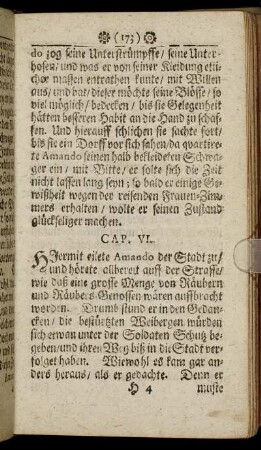 (173)
do zog seine Unterstrümpffe/ seine Unter-
hosen/ und was er von seiner Kleidung etli-
cher massen entrathen kunte/ mit Willen
aus/ und bat/ dieser möchte seine Blösse/ so
viel möglich/ bedecken/ bis sie Gelegenheit
hätten besseren Habit an die Hand zu schaf-
fen. Und hierauff schlichen sie sachte fort/
bis sie ein Dorff vor sich sahen/ da quartire-
te Amando seinen halb bekleideten Schwa-
ger ein/ mit Bitte/ er solte sich die Zeit
nicht lassen lang seyn; so bald er einige Ge-
wißheit wegen der reisenden Frauen-Zim-
mers erhalten/ wolte er seinen Zustand
glückseliger machen.
CAP. VI.
HIermit eilete Amando der Stadt zu/
und hörete allbereit auff der Strasse/
wie daß eine grosse Menge von Räubern
und Räubers-Genossen wären auffbracht
worden. Drumb stund er in den Gedan-
cken/ die bestürtzten Weibergen würden
sich etwan unter der Soldaten Schutz be-
geben/ und ihren Weg biß in die Stadt ver-
folget haben. Wiewohl es kam gar an-
ders heraus/ als er gedachte. Denn er
H 4 muste